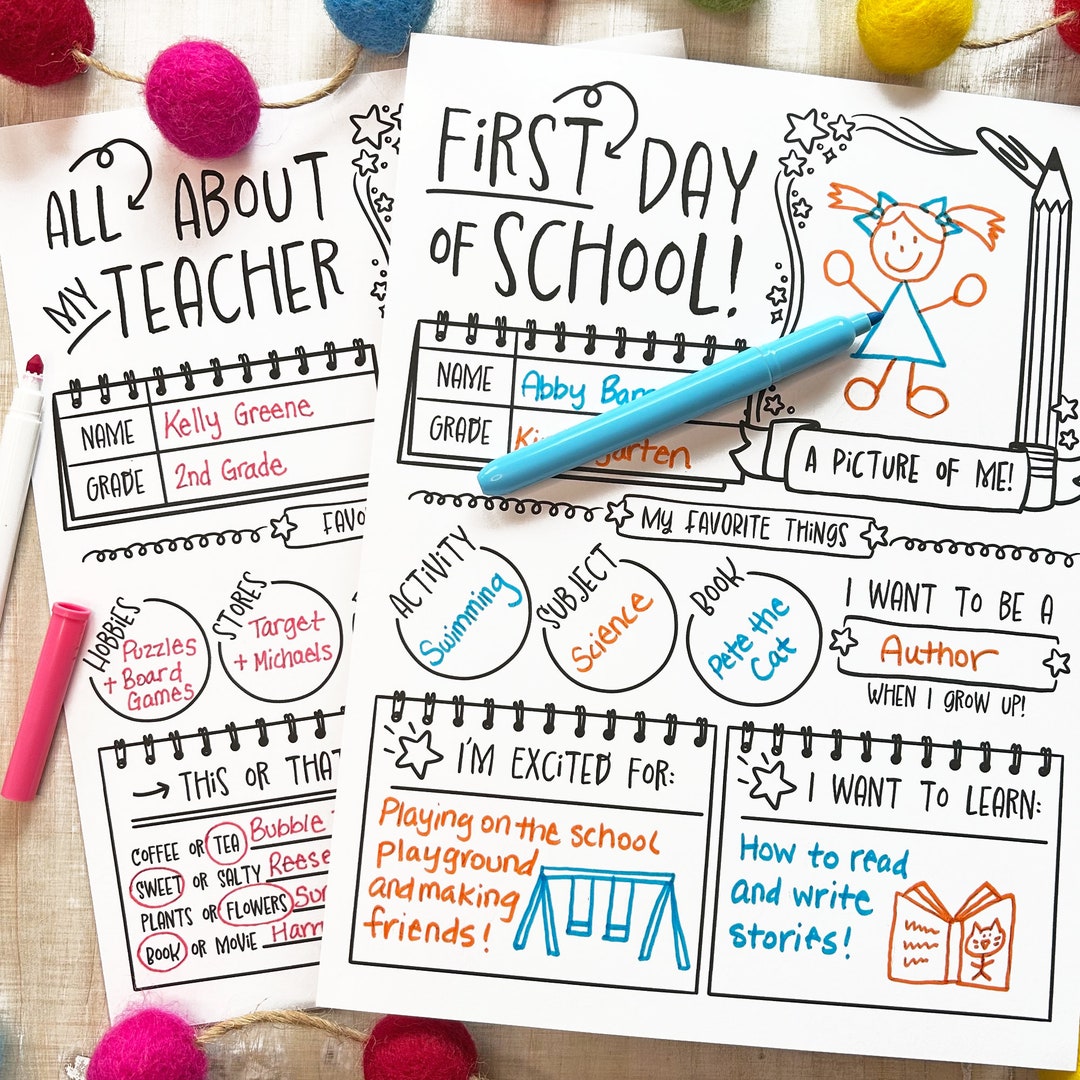 ALL ABOUT
MY TEACHER
NAME Kelly Greene
GRADE 2nd Grade
HOBBIES
Puzzles
+ Board
Games
STORES
Target
+ Michaels
THIS OR
COFFEE OR TEA Bubble
SWEET OR SALTY
PLANTS OR FLOWERS
BOOK OR MOVIE
FIRST DAY
OF SCHOOL!
NAME Abby
GRADE
A PICTURE OF ME!
MY FAVORITE THINGS
ACTIVITY
Swimming
SUBJECT
Science
BOOK
Pete the
Cat
I WANT TO BE A
Author
WHEN I GROW UP!
I'M EXCITED FOR:
Playing on the school
playground
and making
friends!
I WANT TO LEARN:
How to read
and write
stories!